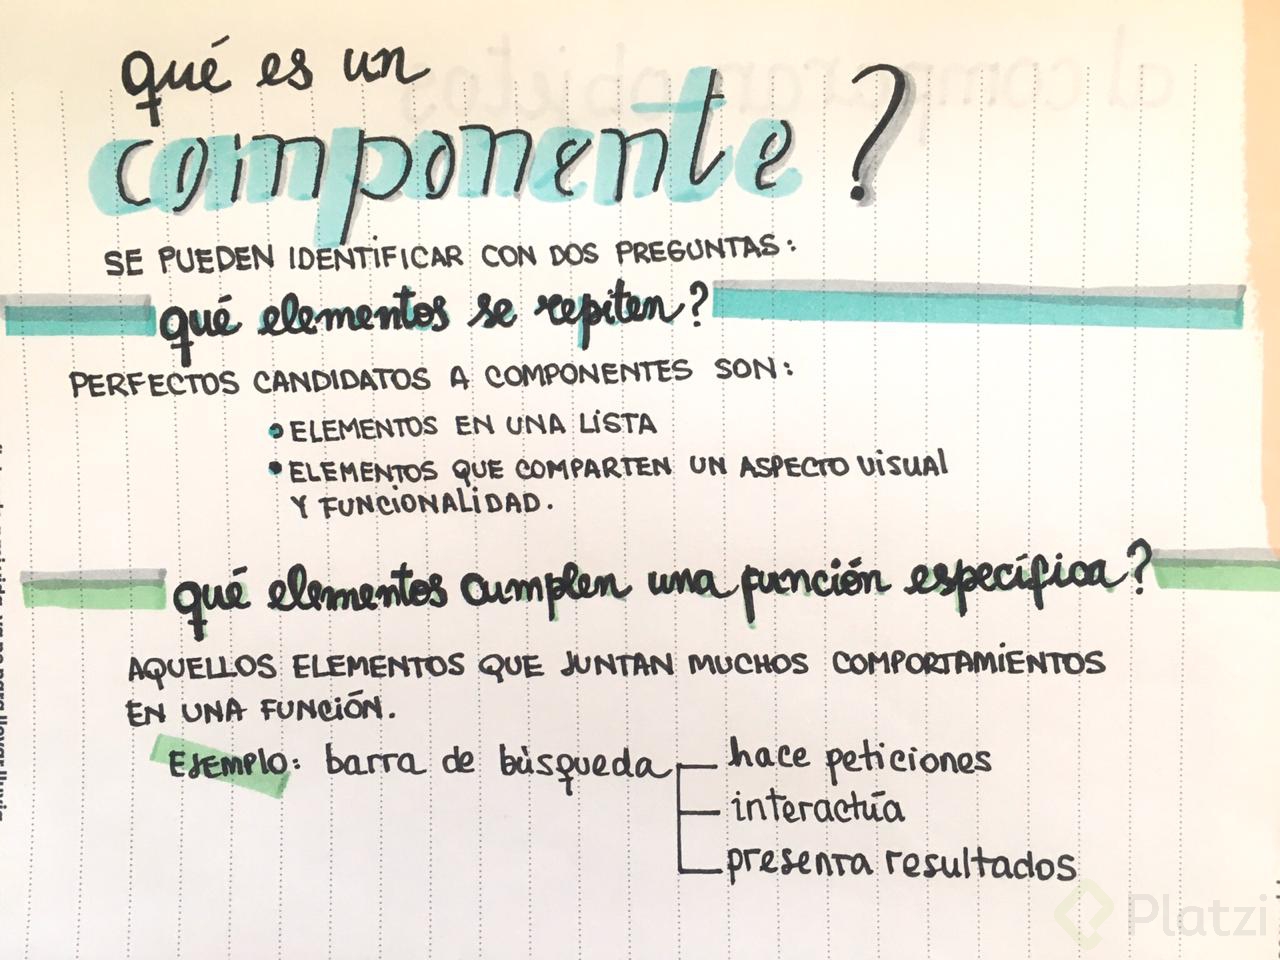 qué es un
componente?
SE PUEDEN IDENTIFICAR CON DOS PREGUNTAS:
qué elementos se repiten?
PERFECTOS CANDIDATOS A COMPONENTES SON:
• ELEMENTOS EN UNA LISTA
• ELEMENTOS QUE COMPARTEN UN ASPECTO VISUAL
Y FUNCIONALIDAD.
qué elementos cumplen una función específica?
AQUELLOS ELEMENTOS QUE JUNTAN MUCHOS COMPORTAMIENTOS
EN UNA FUNCIÓN.
EJEMPLO: barra de búsqueda
hace peticiones
interactúa
presenta resultados
Platzi